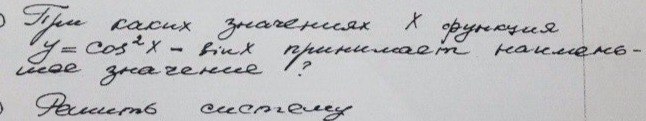 ) При каких значениях X функция
y = cos²x - sinx принимает наимень-
шее значение ?
) Решить систему